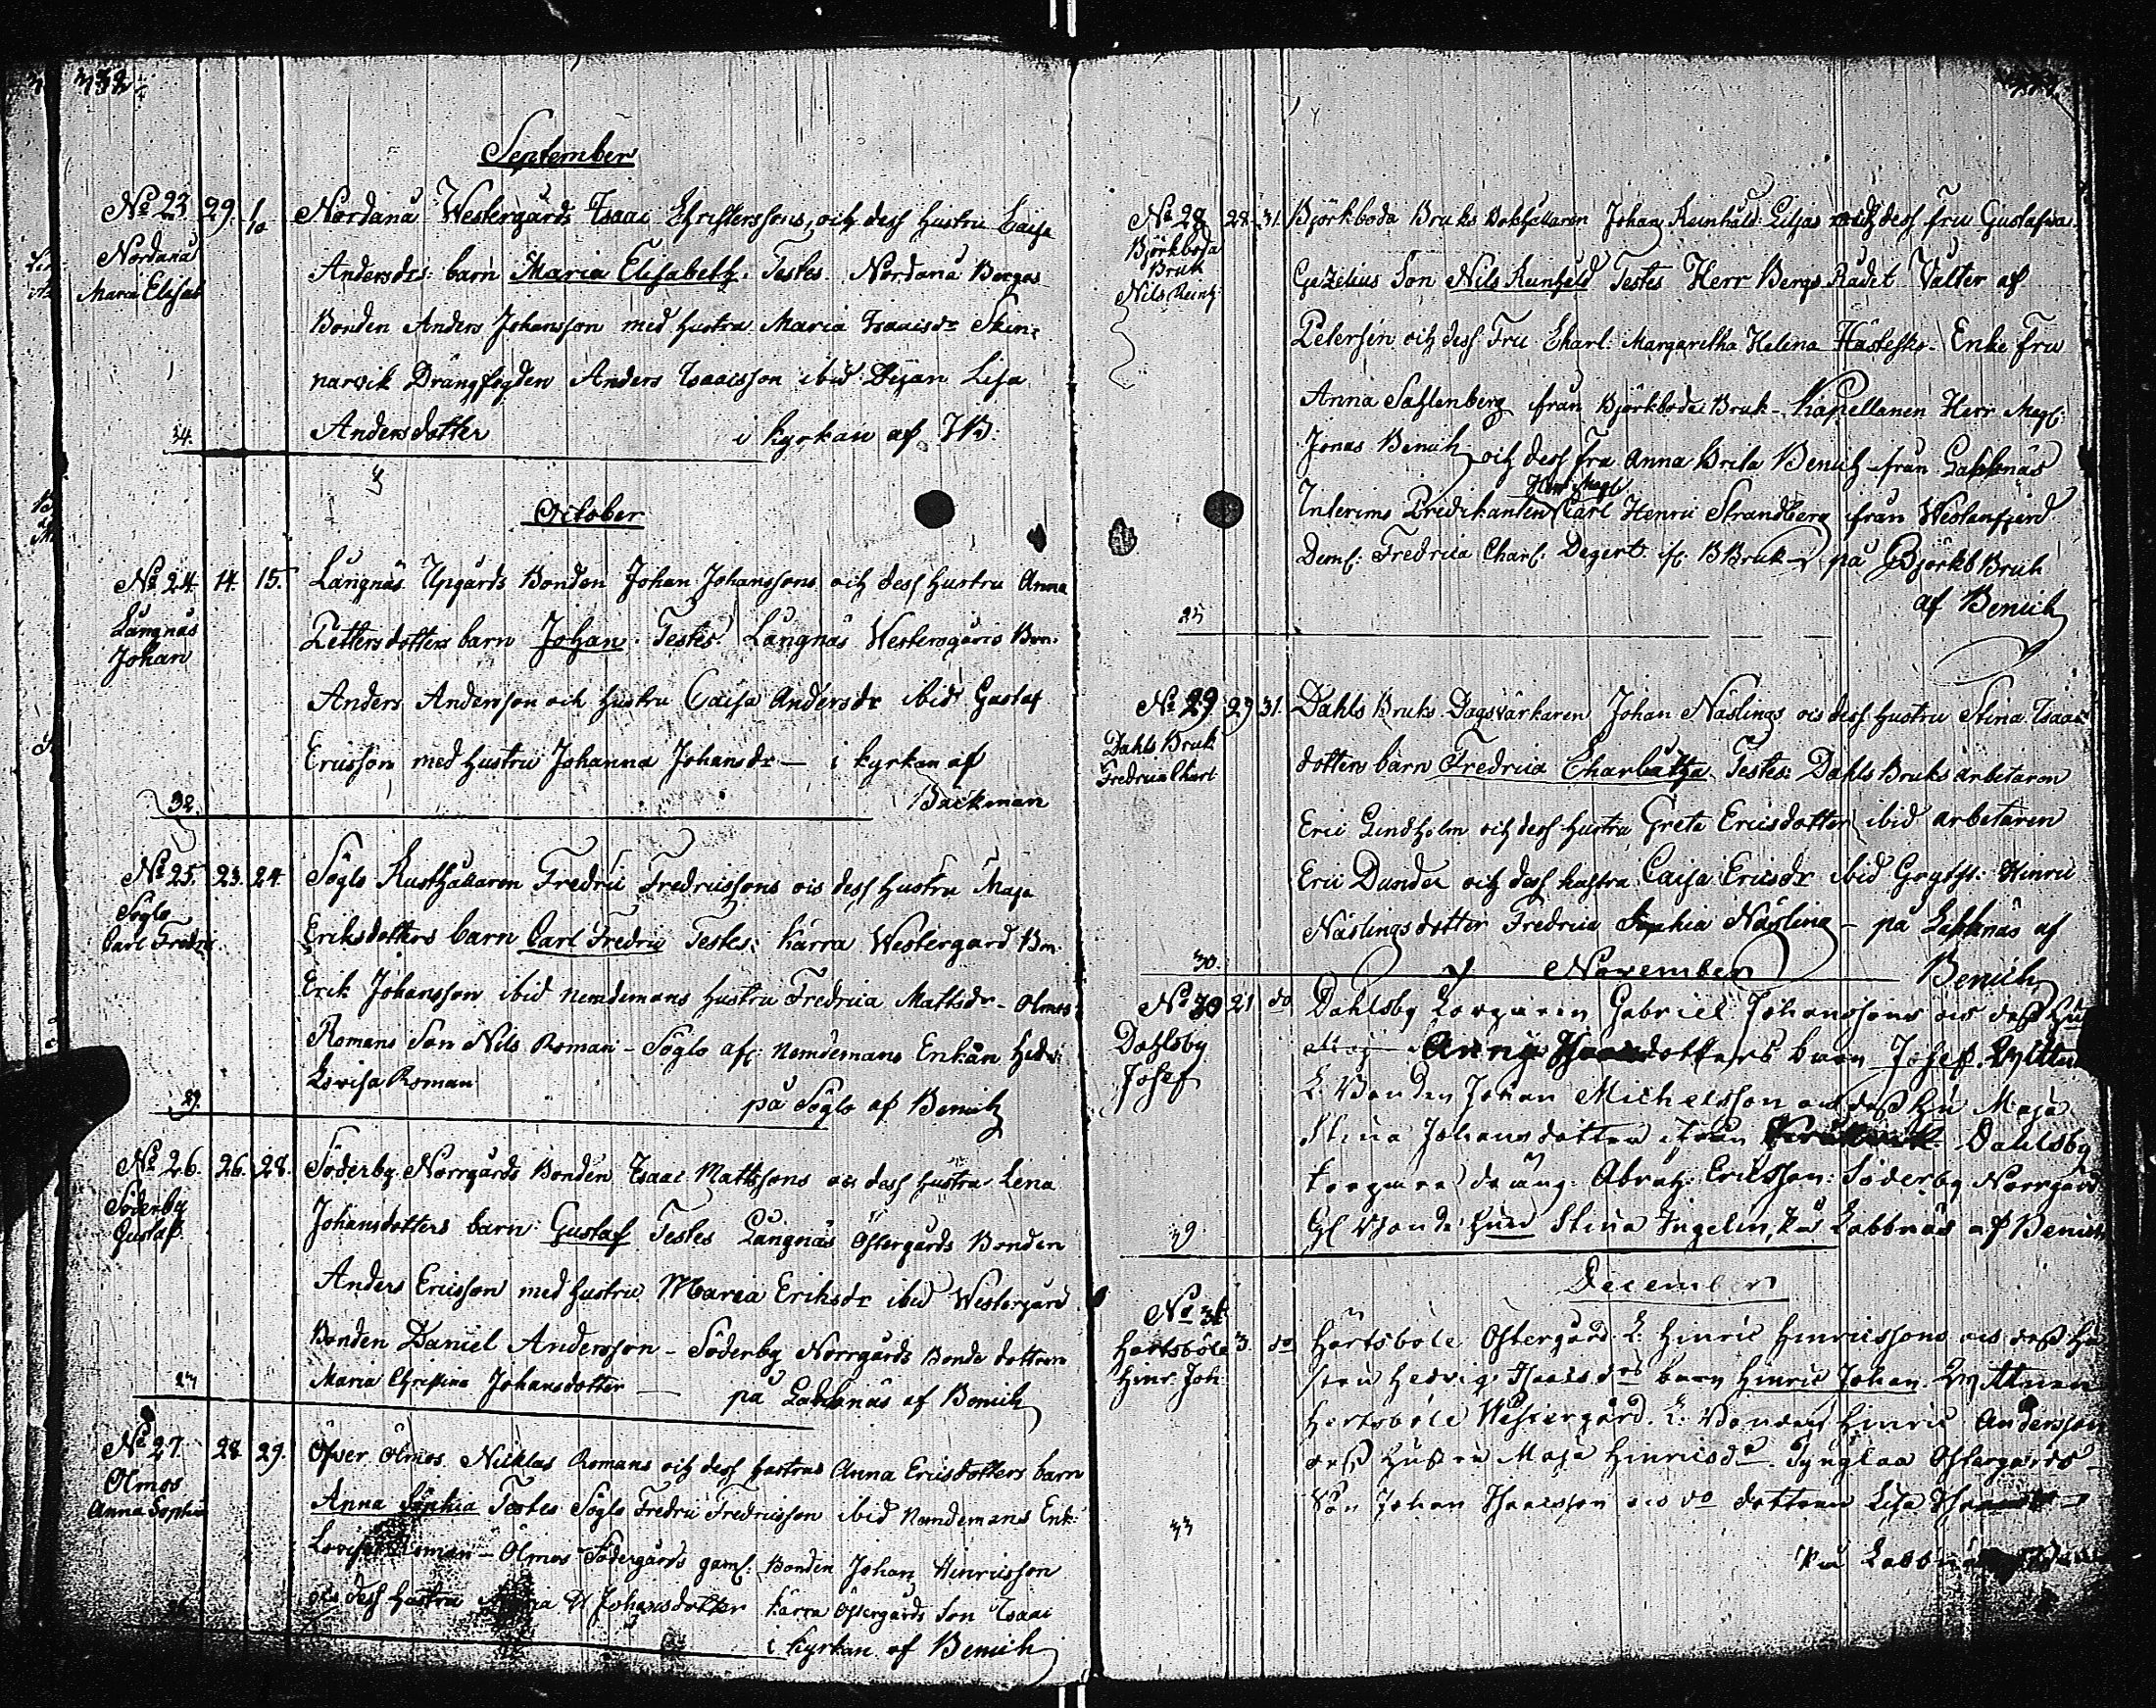 September
No 23 29. 1/10 Nordanå Westergårds Isaac Christerssons, och dess hustru Caisa
Nordanå
Maria Elisab
Andersdrs: barn Maria Elisabeth. Testes. Nordanå Borgas
Bonden Anders Johansson med hustru Maria Isaacsdr Skin=
narvik Drängfogden Anders Isaacsson ibid Lisa
34. Andersdotter i kyrkan af JB.
October
No 24 14. 15. Långnäs Upgårds Bonden Johan Johanssons och dess hustru Anna
Långnäs
Johan
Pettersdotters barn Johan. Testes Långnäs Westergårds Bon.
Anders Andersson och hustru Caisa Andersdr ibid Gustaf
Ericsson med hustru Johanna Johansdr — i kyrkan af
32. Backman
No 25. 23. 24 Söglo Rusthållaren Fredric Fredricssons och dess hustru Maja
Söglo
Carl Fredric
Eriksdotters barn Carl Fredric Testes: Kärra Westergård Bon.
Erik Johansson ibid nemdemans hustru Fredrica Mattsdr - Ölmos
Romans Son Nils Roman - Söglo afl: Nemdemans Enkan Hedv:
Lovisa Roman
29. på Söglo af Benich
No 26. 26. 28. Söderby Norrgårds Bonden Isaac Mattssons och dess hustru Lena
Söderby
Gustaf
Johansdotters barn: Gustaf Testes Långnäs Östergårds Bonden
Anders Ericsson med hustru Maria Eriksdr ibid Westergård
Bonden Daniel Andersson - Söderby Norrgårds Bonde dottren
27 Maria Christina Johansdotter — på Labbnäs af Benich
No 27. 28 29. Öfver Ölmos Nicklas Romans och dess hustrus Anna Ericsdotters barn
Ölmos
Anna Sophia
Anna Sophia Testes Söglo Fredric Fredricsson ibid Nemdemans Enk:
Lovisa Roman - Ölmos Södergårds gaml: Bonden Johan Hinricsson
och dess hustru Johansdotter Kärra Östergårds Son Isaac
i kyrkan af Benich
No 28 28. 31. Björkboda Bruks Bokhållaren Johan Reinhold Liljas och dess Fru Gustafva
Björkboda
Bruk
Nils Reinh:
Gazelius Son Nils Reinhold Testes Herr Bergs Rådet Valter af
Petersén och dess Fru Charl: Margaretha Helena Hästesko - Enke Fru
Anna Sahlenberg från Björkboda Bruk - Kapellanen Herr Mag:
Jonas Benich och dess Fru Anna Brita Benich från Labbnäs
Herr Mag:
Interims Predikanten Carl Henric Strandberg från Westanfjerd
Deml: Fredrica Charl: Degert på Björkb Bruk
25 af Benich
No 29 29 31. Dahls Bruks Dagsvärkaren Johan Näslings och dess hustru Stina Isaacs
Dahls Bruk
Fredrica Charl
dotters barn Fredrica Charlotta Testes: Dahls Bruks arbetaren
Eric Lindholm och dess hustru Greta Ericsdotter ibid arbetaren
Eric Dunder och dess hustru Caisa Ericsdr ibid Hinric
Näslings dotter Fredrica Sophia Näsling - på Labbnäs af
30. Benich
November
No 30 21 do Dahlsby Torparen Gabriel Johanssons och dess Hu
Dahlsby
Josef
dotters barn Josef.
Bonden Johan Michelsson och dess hu Maja
Stina Johansdotter från Dahlsby
torpare dräng Abrah: Eriksson: Söderby Norrgård
39 Stina Ingelin, på Labbnäs af Benich
December
No 31
Hertsböle 3. do Hertsböle Östergård Hinric Hinricssons och dess hu
Hinr: Joh:
stru Hedvig Isaacsdrs barn Hinric Johan.
Hertsböle Westergård Bonden Hinric Andersson
dess hustru Maja Hinricsdr. Östergårds
33 Son Johan Isacsson och do dottren Lisa
på Labbnäs